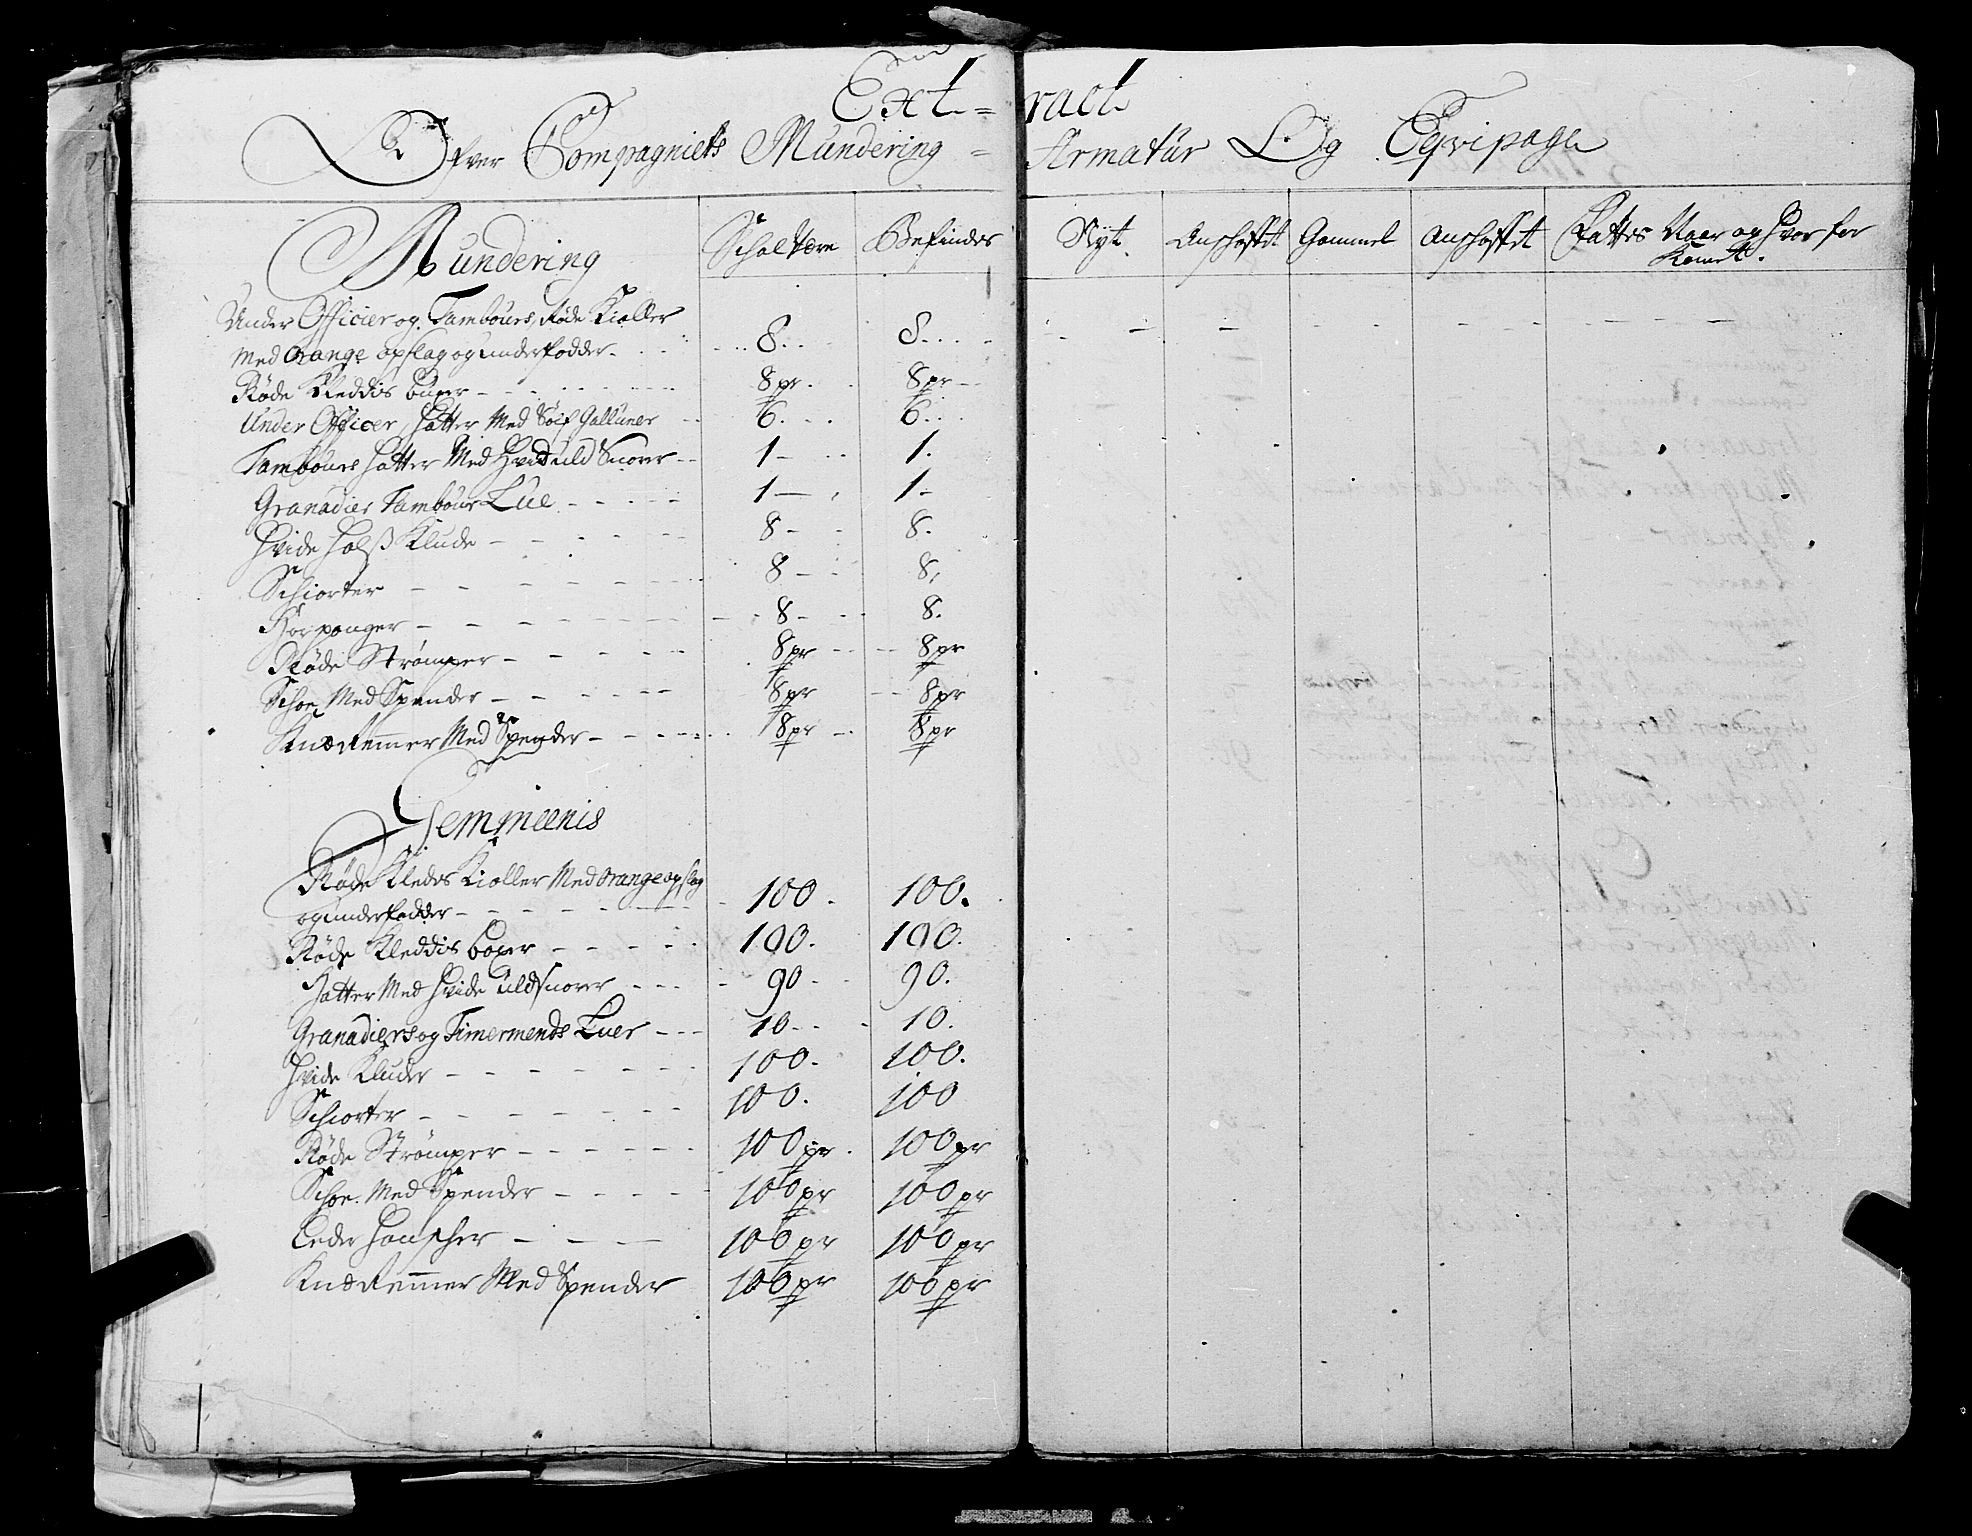 Ext= ract
Ofver Compagniets Mundering = Armatür Og Eqvipage
Mundering Schal være Befindes Nyt. Anshoffet Gammel Anshoffet Fattes Naar og Hvor for
Komt.
Under Officier og Tambours, Røde Kioller
Med Orange opslag og underfodder 8 8
Røde Kleddis buxer 8 pr 8 pr
Under Officer, Hatter Med Sölf Galluner 6 6
Tambours Hatter Med Hvid uld Snorer 1 1.
Granadier Tambour Lue 1 1
Hvide Halß Klude 8 8.
Schiorter 8 8,
Horponger 8 8.
Røde Strømper 8 pr 8 pr
Schoe Med Spender 8 pr 8 pr
Knæ Remmer Med Spender 8 pr 8 pr
Gemmeenis
Røde Kledes Kioller Med Orange opslag
og underfodder 100. 100.
Røde Kleddis boxer 100. 100.
Hatter Med Hvide uld snorer 90 90.
Granadiers og Timermends Luer 10 10.
Hvide Kluder 100. 100.
Schiorter 100. 100
Røde Strømper 100 pr. 100 pr
Schoe. Med Spender 100 pr 100 pr
Leder Handscher 100 pr 100 pr
Knæ Remmer Med Spender 100 pr 100 pr